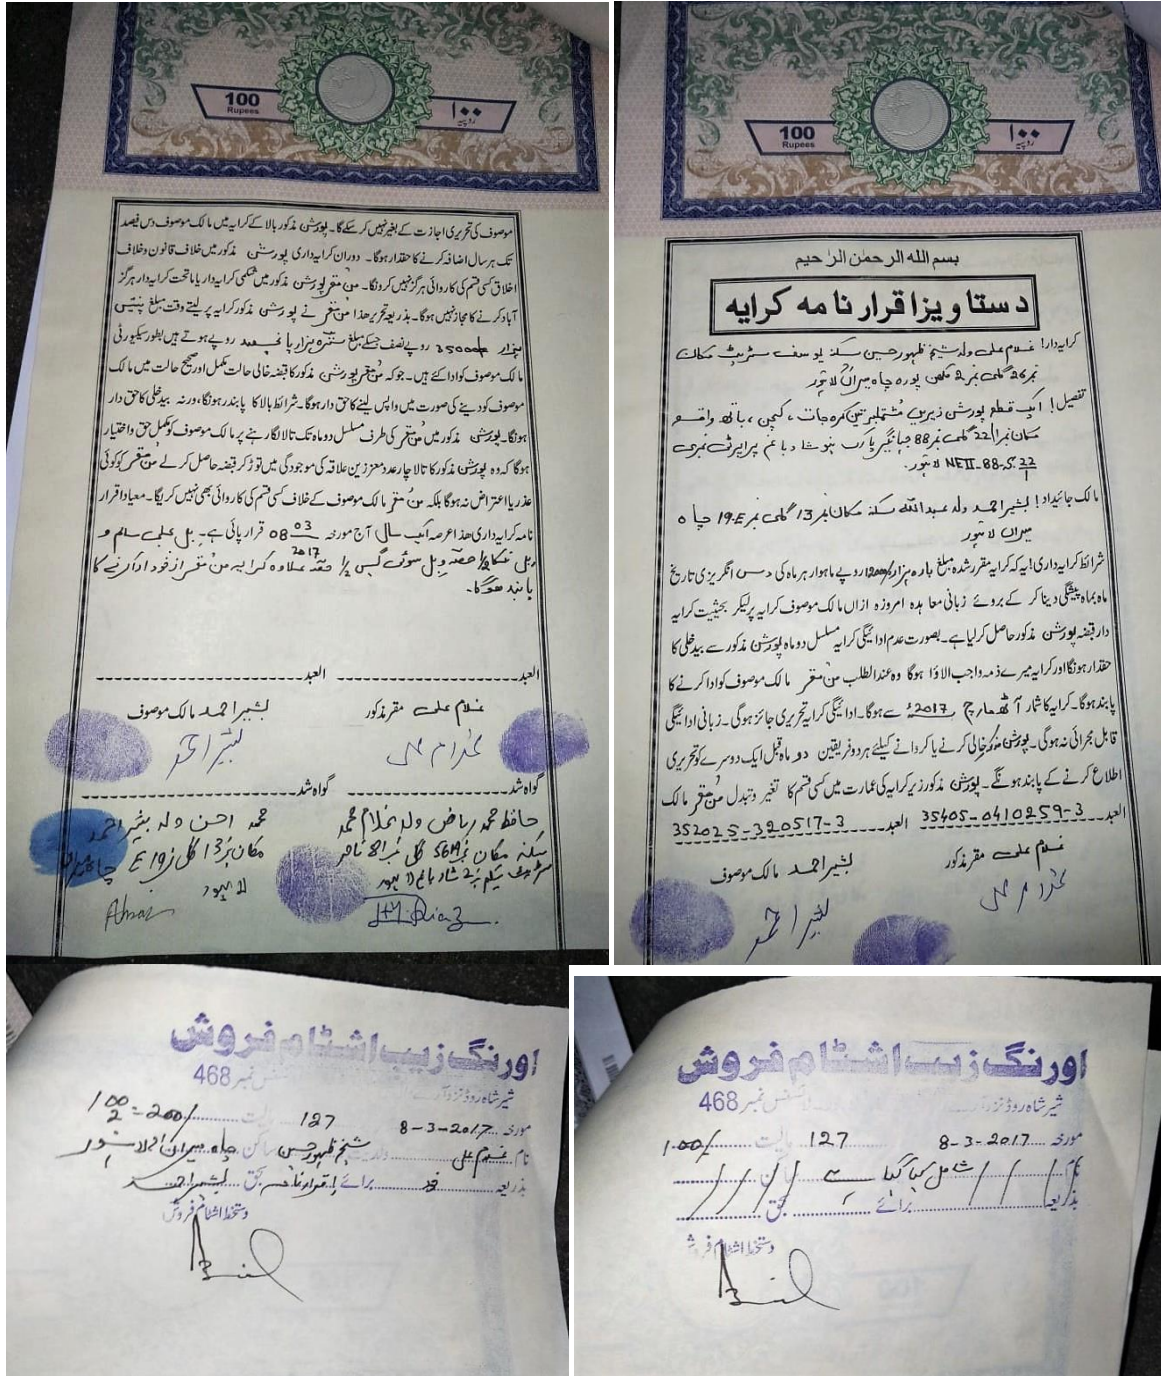 100
Rupees
۱۰۰
روپیہ
بسم اللہ الرحمٰن الرحیم
دستاویز اقرار نامہ کرایہ
کرایہ دار! غلام علی ولد شیخ ظہور حسین سکنہ یوسف سٹریٹ مکان
نمبر 26 گلی نمبر 2 مکھن پورہ چاہ میراں لاہور
تفصیل! ایک قطعہ پورشن زیریں مشتملبر تین کمرہ جات، کچن، باتھ واقع
مکان نمبر 22/1 گلی نمبر 88 جہانگیر پارک نیو شاد باغ پراپرٹی نمبری
NEII-88-S-22/1 لاہور۔
مالک جائیداد! بشیر احمد ولد عبداللہ سکنہ مکان نمبر 13 گلی نمبر 19-E چاہ
میراں لاہور
شرائط کرایہ داری! یہ کہ کرایہ مقرر شدہ مبلغ بارہ ہزار/12000 روپے ماہوار ہر ماہ کی دس انگریزی تاریخ
ماہ بماہ پیشگی دینا کر کے بروئے زبانی معاہدہ امروزہ ازاں مالک موصوف کرایہ پر لیکر بحیثیت کرایہ
دار قبضہ پورشن مذکور حاصل کر لیا ہے۔ بصورت عدم ادائیگی کرایہ مسلسل دو ماہ پورشن مذکور سے بیدخلی کا
حقدار ہونگا اور کرایہ میرے ذمہ واجب الاؤا ہوگا وہ عندالطلب من مقر مالک موصوف کو ادا کرنے کا
پابند ہوگا۔ کرایہ کا شمار آٹھ مارچ 2017ء سے ہوگا۔ ادائیگی کرایہ تحریری جائز ہوگی۔ زبانی ادائیگی
قابل مجرائی نہ ہوگی۔ پورشن مذکور خالی کرنے یا کروانے کیلئے ہر دو فریقین دو ماہ قبل ایک دوسرے کو تحریری
اطلاع کرنے کے پابند ہونگے۔ پورشن مذکور زیر کرایہ کی عمارت میں کسی قسم کا تغیر و تبدل من مقر مالک
العبد 35405-0410259-3 العبد 352025-320517-3
غلام علی مقر مذکور بشیر احمد مالک موصوف
غلام علی بشیر احمد
100
Rupees
۱۰۰
روپیہ
موصوف کی تحریری اجازت کے بغیر نہیں کر سکے گا۔ پورشن مذکور بالا کے کرایہ میں مالک موصوف دس فیصد
تک ہر سال اضافہ کرنے کا حقدار ہوگا۔ دوران کرایہ داری پورشن مذکور میں خلاف قانون و خلاف
اخلاق کسی قسم کی کاروائی ہرگز نہیں کرونگا۔ من مقر پورشن مذکور میں شکمی کرایہ دار یا ماتحت کرایہ دار ہرگز
آباد کرنے کا مجاز نہیں ہوگا۔ بذریعہ تحریر ھذا من مقر نے پورشن مذکور کرایہ پر لیتے وقت مبلغ پنتیس
ہزار 35000/- روپے نصف جسکے مبلغ سترہ ہزار پانچصد روپے ہوتے ہیں بطور سیکیورٹی
مالک موصوف کو ادا کئے ہیں۔ جو کہ من مقر پورشن مذکور کا قبضہ خالی حالت مکمل اور صحیح حالت میں مالک
موصوف کو دینے کی صورت میں واپس لینے کا حق دار ہوگا۔ شرائط بالا کا پابند رہونگا، ورنہ بیدخلی کا حق دار
ہونگا۔ پورشن مذکور میں من مقر کی طرف مسلسل دو ماہ تک تالا لگا رہنے پر مالک موصوف کو مکمل حق و اختیار
ہوگا کہ وہ پورشن مذکور کا تالا چار عدد معززین علاقہ کی موجودگی میں توڑ کر قبضہ حاصل کر لے من مقر کو کوئی
عذر یا اعتراض نہ ہوگا بلکہ من مقر مالک موصوف کے خلاف کسی قسم کی کاروائی بھی نہیں کریگا۔ معیاد اقرار
نامہ کرایہ داری ھذا عرصہ ایک سال آج مورخہ 08 03 2017 قرار پائی ہے۔ بل بجلی سالم و
بل نلکا 1/2 حصہ و بل سوئی گیس 1/2 حصہ علاوہ کرایہ من مقر از خود ادا کرنے کا
پابند ہوگا۔
العبد العبد
غلام علی مقر مذکور بشیر احمد مالک موصوف
غلام علی بشیر احمد
گواہ شد گواہ شد
حافظ محمد ریاض ولد غلام محمد
سکنہ مکان نمبر 56M گلی نمبر 81 ناصر
سٹریٹ سکیم نمبر 2 شاد باغ لاہور
H.M.Riaz
محمد احسن ولد بشیر احمد
مکان نمبر 13 گلی نمبر 19 E چاہ میراں
لاہور
اورنگ زیب اشٹام فروش
شیر شاہ روڈ لائسنس نمبر 468
مورخہ 8-3-2017 127 مالیت 100/2=200/
نام غلام علی ولدیت شیخ ظہور حسین ساکن چاہ میراں لاہور
بذریعہ خود برائے اقرار نامہ بحق بشیر احمد
دستخط اشٹام فروش
اورنگ زیب اشٹام فروش
شیر شاہ روڈ لائسنس نمبر 468
مورخہ 8-3-2017 127 مالیت 100/
نام شامل کیا گیا ہے
بذریعہ برائے بحق
دستخط اشٹام فروش